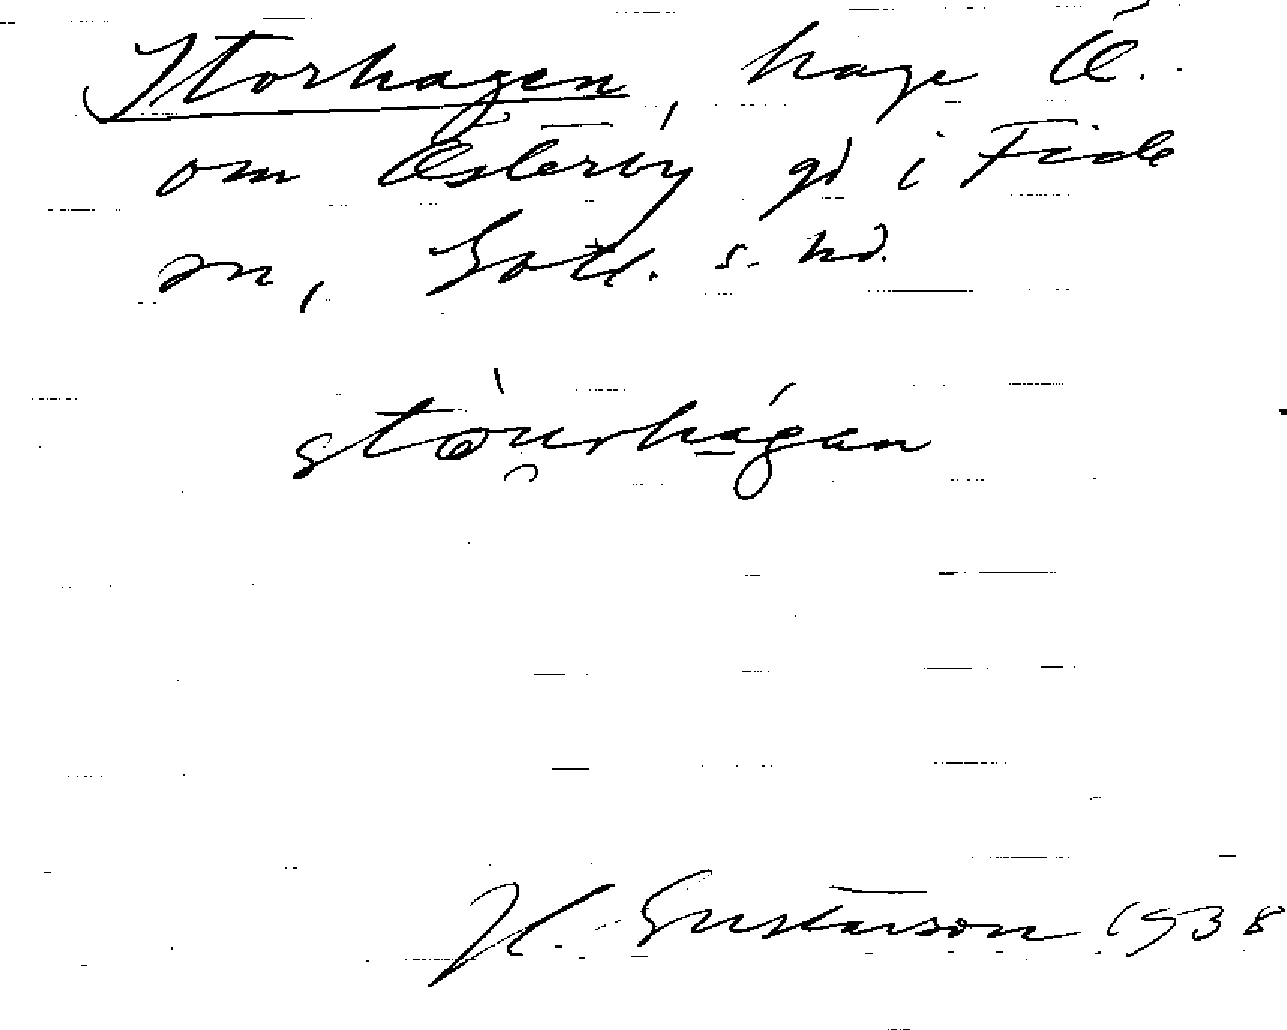 Storhagen, hage Ö.
om Österby gd i Fide
sn, Gotl. s. hd.
stöurhagan
H. Gustavson 1938